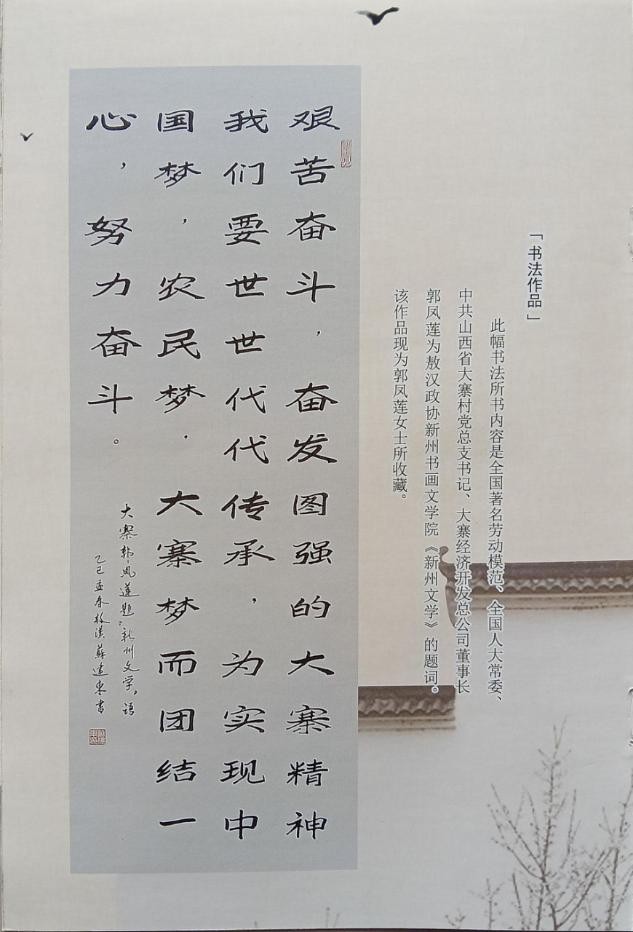 「书法作品」
此幅书法所书内容是全国著名劳动模范、全国人大常委、
中共山西省大寨村党总支书记、大寨经济开发总公司董事长
郭凤莲为敖汉政协新州书画文学院《新州文学》的题词。
该作品现为郭凤莲女士所收藏。
艰苦奋斗，奋发图强的大寨精神
我们要世世代代传承，为实现中
国梦，农民梦，大寨梦而团结一
心，努力奋斗。
大寨郭凤莲题“新州文学”语
乙巳孟春敖汉